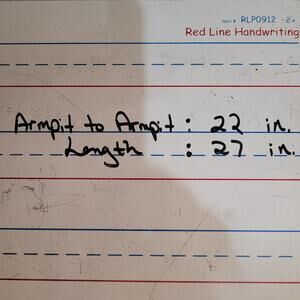 Item # RLP0912 -2x
Red Line Handwriting
Armpit to Armpit: 22 in.
Length : 27 in.